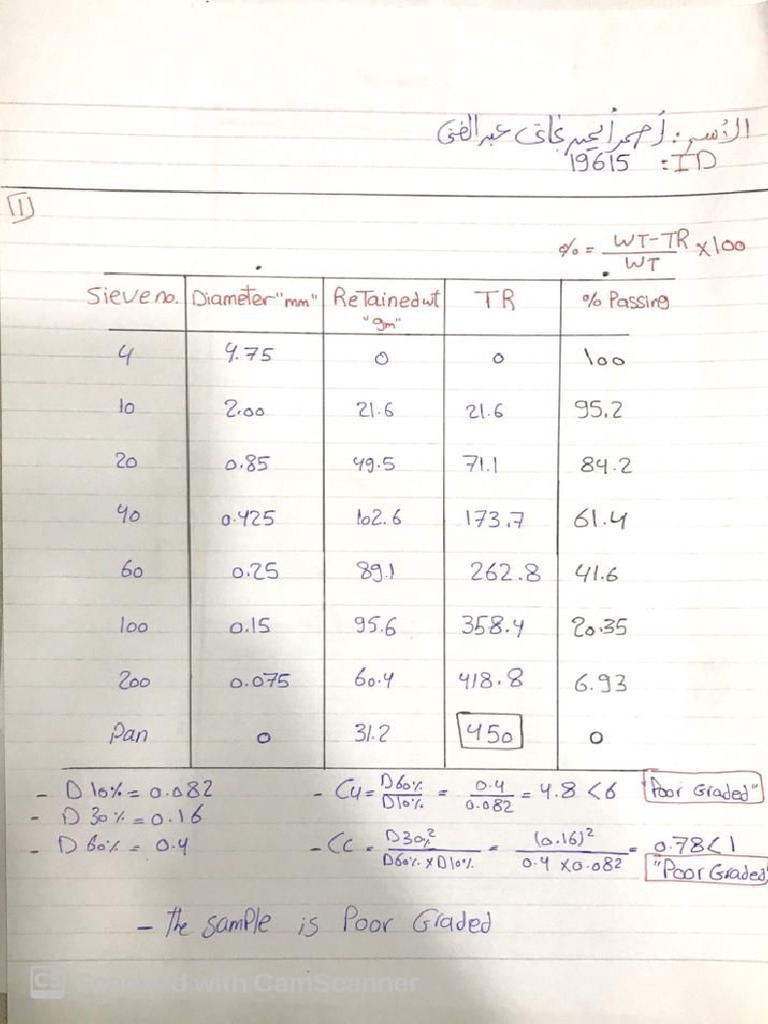 الاسم : أحمد أيمن غانى عبد الغنى
ID: 19615
[1]
% = WT-TR/WT x100
Sieve no. Diameter "mm" Retained wt "gm" TR % Passing
4 4.75 0 0 100
10 2.00 21.6 21.6 95.2
20 0.85 49.5 71.1 84.2
40 0.425 102.6 173.7 61.4
60 0.25 89.1 262.8 41.6
100 0.15 95.6 358.4 20.35
200 0.075 60.4 418.8 6.93
Pan 0 31.2 450 0
- D 10% = 0.082
- D 30% = 0.16
- D 60% = 0.4
- Cu = D60%/D10% = 0.4/0.082 = 4.8 <6 "Poor Graded"
- Cc = D30%²/D60% x D10% = (0.16)²/0.4 x0.082 = 0.78<1
"Poor Graded"
- The sample is Poor Graded
CS Scanned with CamScanner